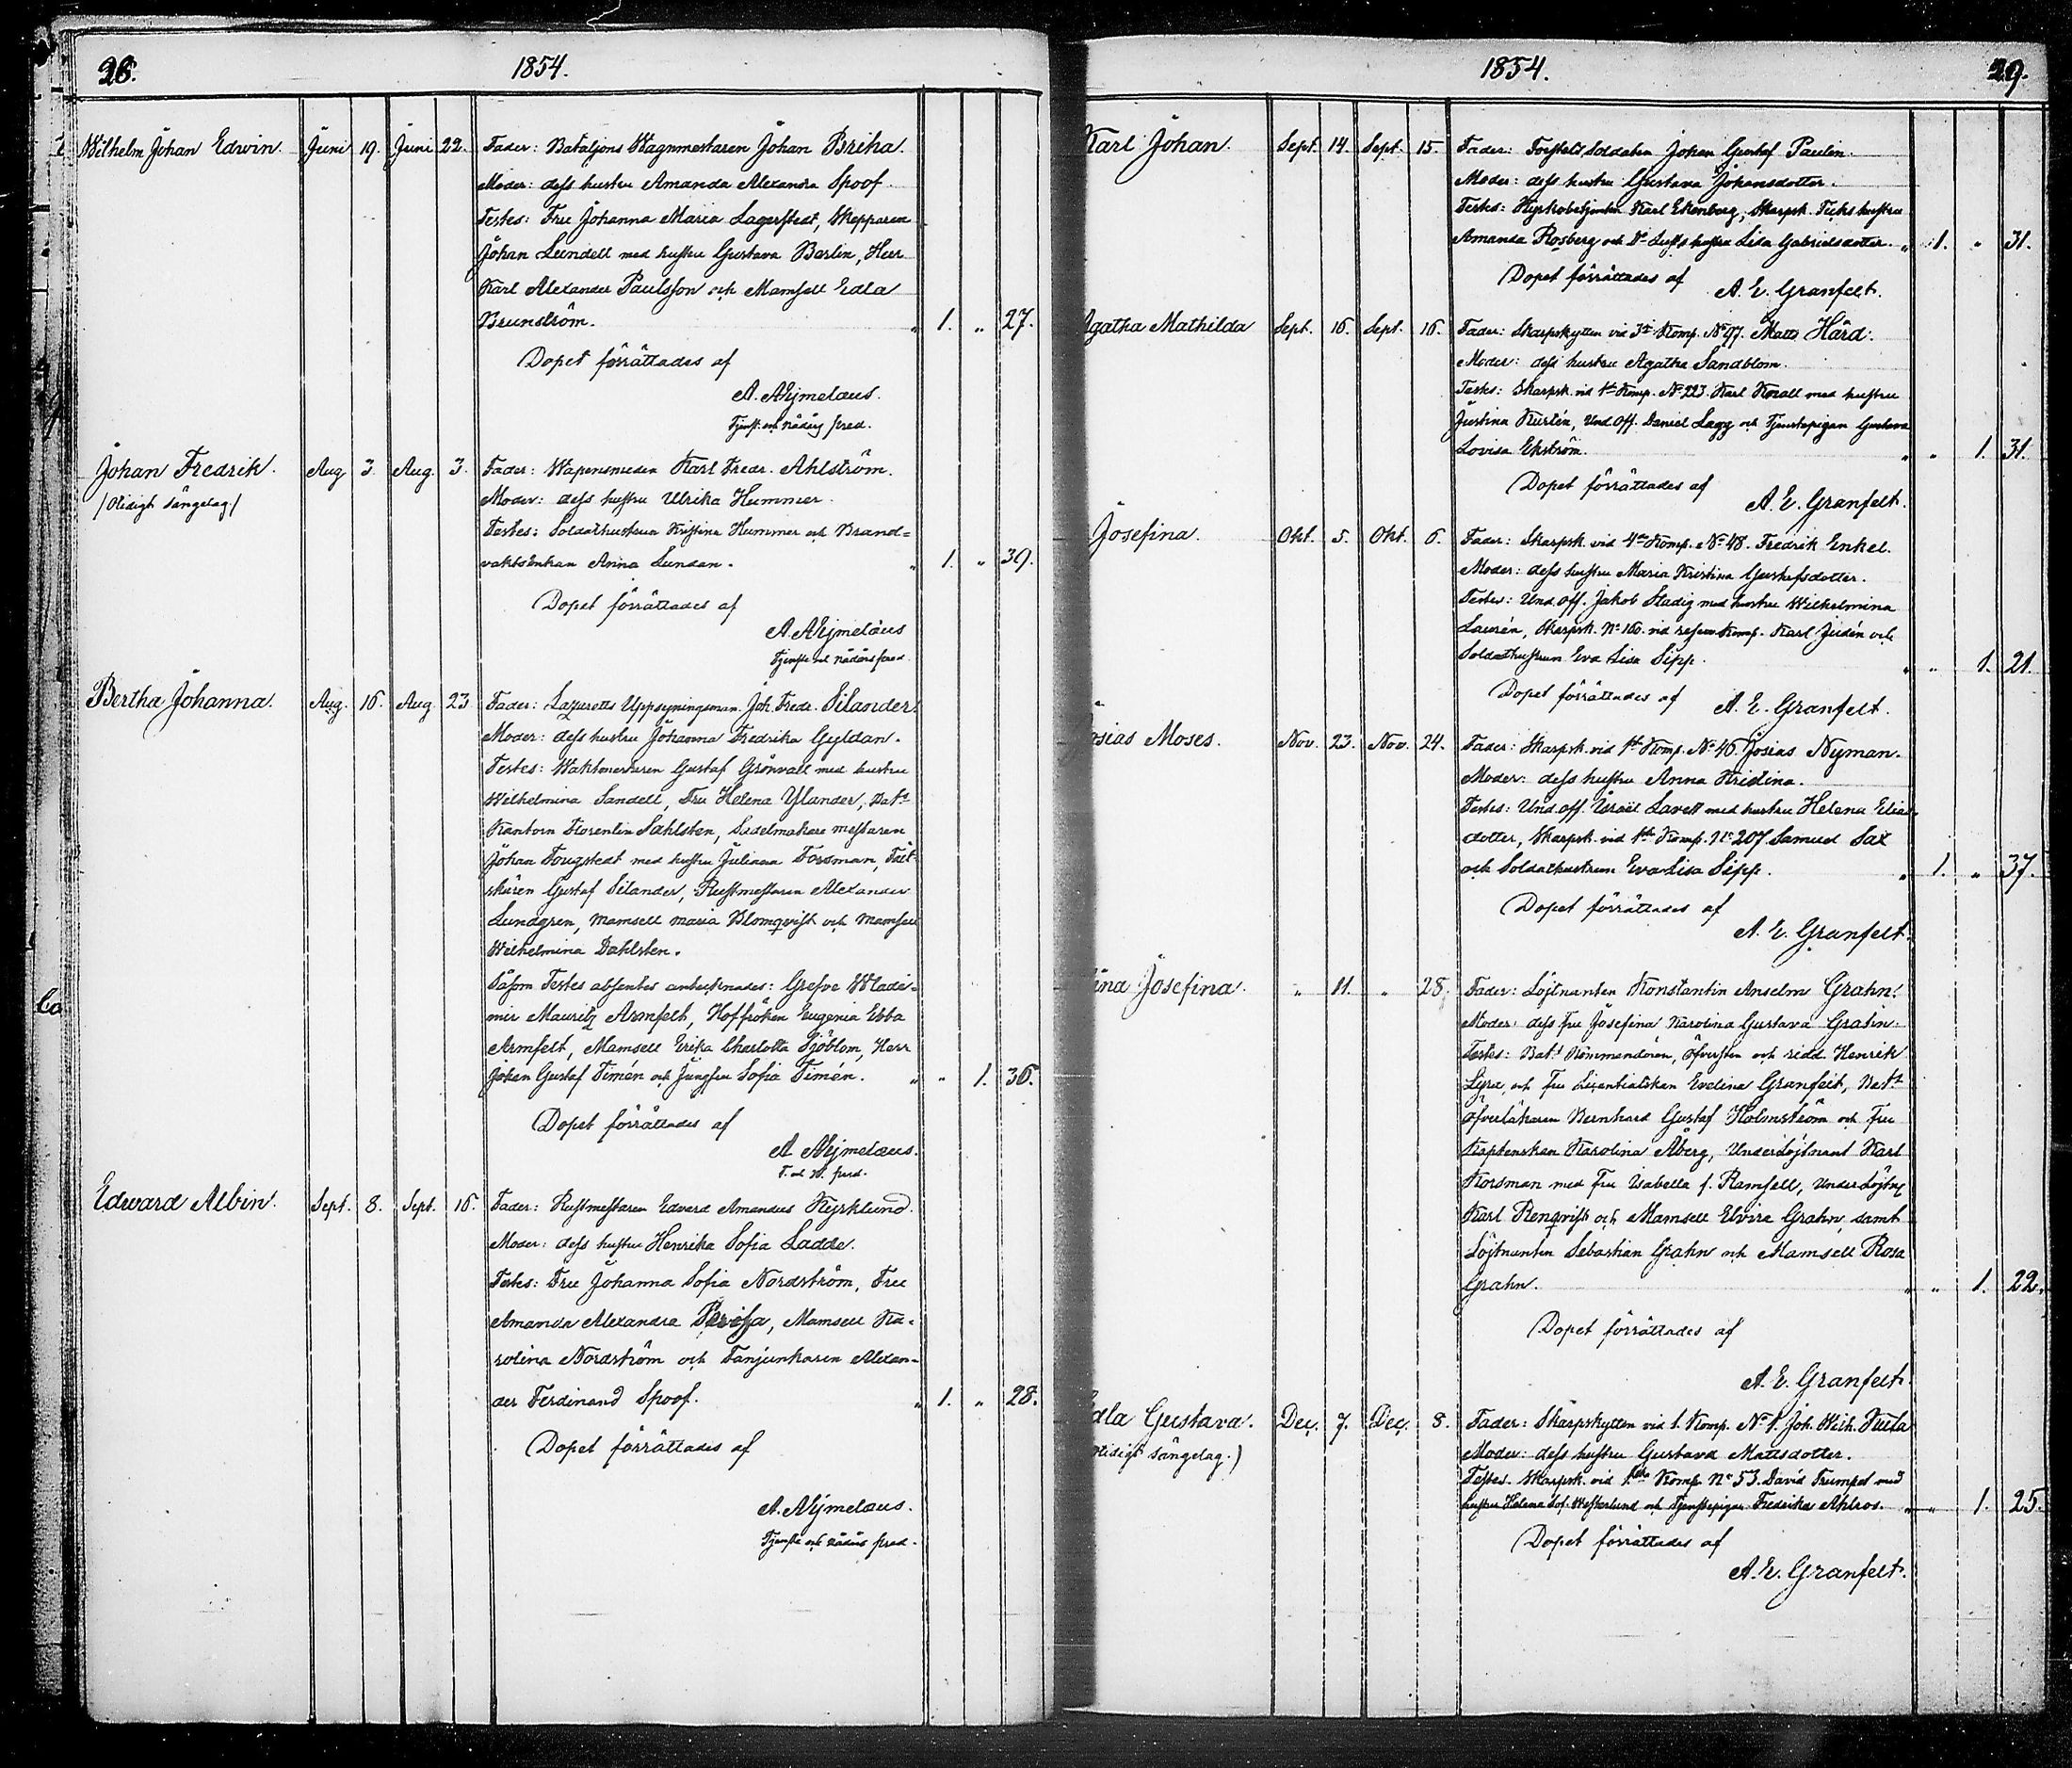 28.
1854.
Wilhelm Johan Edwin. Juni 19. Juni 22. Fader: Bataljons Wagnmestaren Johan Briha.
Moder: dess hustru Amanda Alexandra Spoof.
Testes: Fru Johanna Maria Lagerstedt, Skepparen
Johan Lundell med hustru Gustava Berlin, Herr
Karl Alexander Paulsson och Mamsell Edla
Brunström. " 1. " 27.
Dopet förrättades af
A. Nymelæus.
Tjenst. och nådårs pred.
Johan Fredrik. Aug 3. Aug. 3. Fader: Wapensmeden Karl Fredr. Ahlström.
/Olidigt sängelag/ Moder: dess hustru Ulrika Hummer.
Testes: Soldathustrun Kristina Hummer och Brand=
vaktsenkan Anna Lundan. " 1. " 39.
Dopet förrättades af
A. Nymelæus
Tjenste och nådårs pred.
Bertha Johanna. Aug. 16. Aug. 23 Fader: Lazaretts Uppsyningsman Joh. Fredr. Silander.
Moder: dess hustru Johanna Fredrika Gyldan.
Testes: Waktmestaren Gustaf Grönvall med hustru
Wilhelmina Sandell, Fru Helena Ylander, Bats
Kantorn Florentin Sahlsten, Sadelmakare mestaren
Johan Fougstedt med hustru Juliana Forsman, Fält-
skären Gustaf Silander, Rustmestaren Alexander
Lundgren, Mamsell Maria Blomqvist och Mamsell
Wilhelmina Dahlsten.
Såsom Testes absentes antecknades: Grefve Wladi-
mir Mauritz Armfelt, Hoffröken Eugenia Ebba
Armfelt, Mamsell Erika Charlotta Sjöblom, Herr
Johan Gustaf Timén och Jungfru Sofia Timén. " " 1. 36.
Dopet förrättades af
A. Nymelæus.
T. och N. pred.
Edward Albin. Sept. 8. Sept. 16. Fader: Rustmestaren Edvard Amandus Kyrklund.
Moder: dess hustru Henrika Sofia Ladde.
Testes: Fru Johanna Sofia Nordström, Fru
Amanda Alexandra, Mamsell Ka-
rolina Nordström och Fanjunkaren Alexan-
der Ferdinand Spoof. " 1. " 28.
Dopet förrättades af
A. Nymelæus.
Tjenste och nådårs pred.
1854.
29.
Karl Johan. Sept. 14. Sept. 15. Fader: Soldaten Johan Gustaf Paulin.
Moder: dess hustru Gustava Johansdotter.
Testes: Kyrkobetjenten Karl Ekenberg, Skarpsk. hustru
Amanda Rosberg och hustru Lisa Gabrielsdotter. " 1. " 31.
Dopet förrättades af
A. E. Granfelt.
Agatha Mathilda Sept. 16. Sept. 16. Fader: Skarpskytten vid 3de Komp. No 97. Matts Hård.
Moder: dess hustru Agatha Sandblom.
Testes: Skarpsk. vid 1sta Komp. No 223. Karl Korall med hustru
Justina Kurtén, Und.Off. Daniel Lagg och Tjenstepigan Gustava
Lovisa Ekström. " " 1. 31.
Dopet förrättades af
A. E. Granfelt.
Josefina. Okt. 5. Okt. 6. Fader: Skarpsk. vid 4de Komp. No 48. Fredrik Enkel.
Moder: dess hustru Maria Kristina Gustafsdotter.
Testes: Und.Off. Jakob Stadig med hustru Wilhelmina
Laurén, Skarpsk. No 160. vid reserv Komp. Karl Judén och
Soldathustrun Eva Lisa Sipp. " " 1. 21.
Dopet förrättades af
A. E. Granfelt.
osias Moses. Nov. 23. Nov. 24. Fader: Skarpsk. vid 1sta Komp. No 46. Josias Nyman.
Moder: dess hustru Anna Fridina.
Testes: Und.Off. Israel Lavett med hustru Helena Elias-
dotter, Skarpsk. vid 1sta Komp. No 207. Samuel Sax
och Soldathustrun Eva Lisa Sipp. " 1. " 37.
Dopet förrättades af
A. E. Granfelt.
ina Josefina. " 11. " 28. Fader: Löjtnanten Konstantin Anselm Grahn.
Moder: dess fru Josefina Karolina Gustava Grahn.
Testes: Bats Kommendören, Öfversten och ridd. Henrik
Lyra och Fru Licentiatskan Evelina Granfelt, Bats
Öfverläkaren Bernhard Gustaf Holmström och Fru
Kaptenskan Karolina Åberg, Underlöjtnant Karl
Korsman med Fru Isabella f. Ramsell, Underlöjtn.
Karl Renqvist och Mamsell Elvira Grahn, samt
Löjtnanten Sebastian Grahn och Mamsell Rosa
Grahn. " " 1. 22.
Dopet förrättades af
A. E. Granfelt.
dla Gustava. Dec. 7. Dec. 8. Fader: Skarpskytten vid 1. Komp. No 1. Joh. Wilh.
olidigt sängelag.) Moder: dess hustru Gustava Mattsdotter.
Testes. Skarpsk. vid 1sta Komp. No 53. David Trumpet med
hustru Helena Sof. Westerlund och Tjenstepigan Fredrika Ahlros. " " 1. 25.
Dopet förrättades af
A. E. Granfelt.